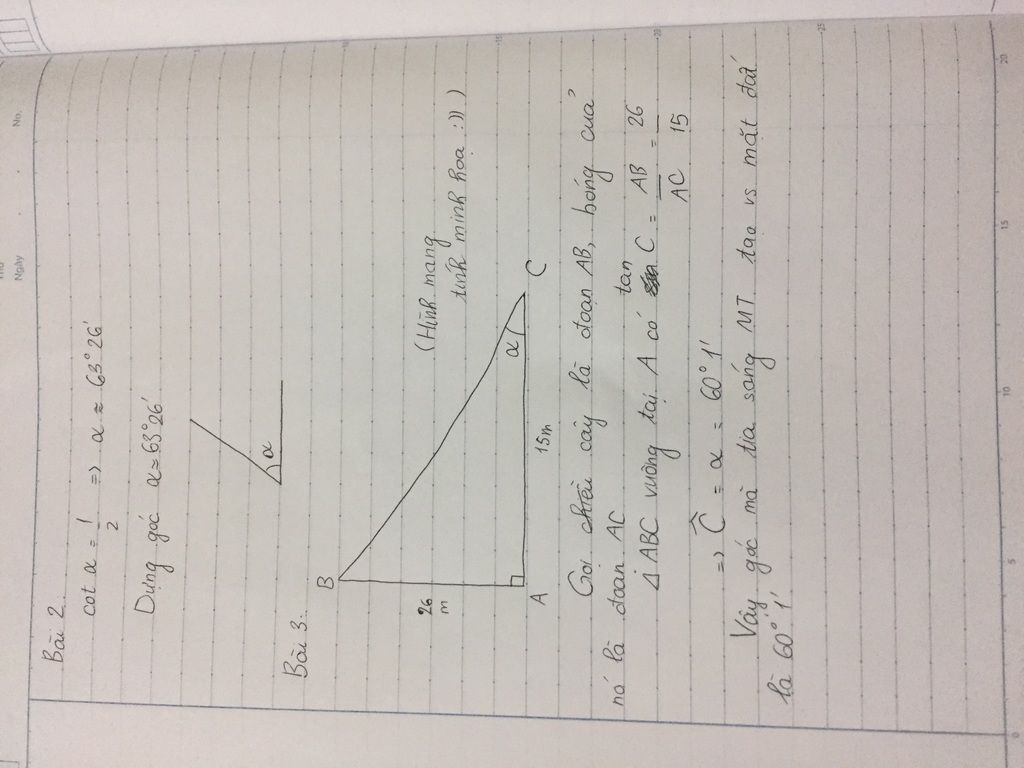 No.
Thứ
Ngày
Bài 2
cot α = 1/2 => α ≈ 63°26'
Dựng góc α ≈ 63°26'
α
Bài 3:
(Hình mang
tính minh hoạ :)) )
B
26
m
A
15m
α
C
Gọi chiều cây là đoạn AB, bóng của
nó là đoạn AC
Δ ABC vuông tại A có tan C = AB/AC = 26/15
=> Ĉ = α = 60°1'
Vậy góc mà tia sáng MT tạo vs mặt đất
là 60°1'
5
10
15
20
5
10
15
20
25